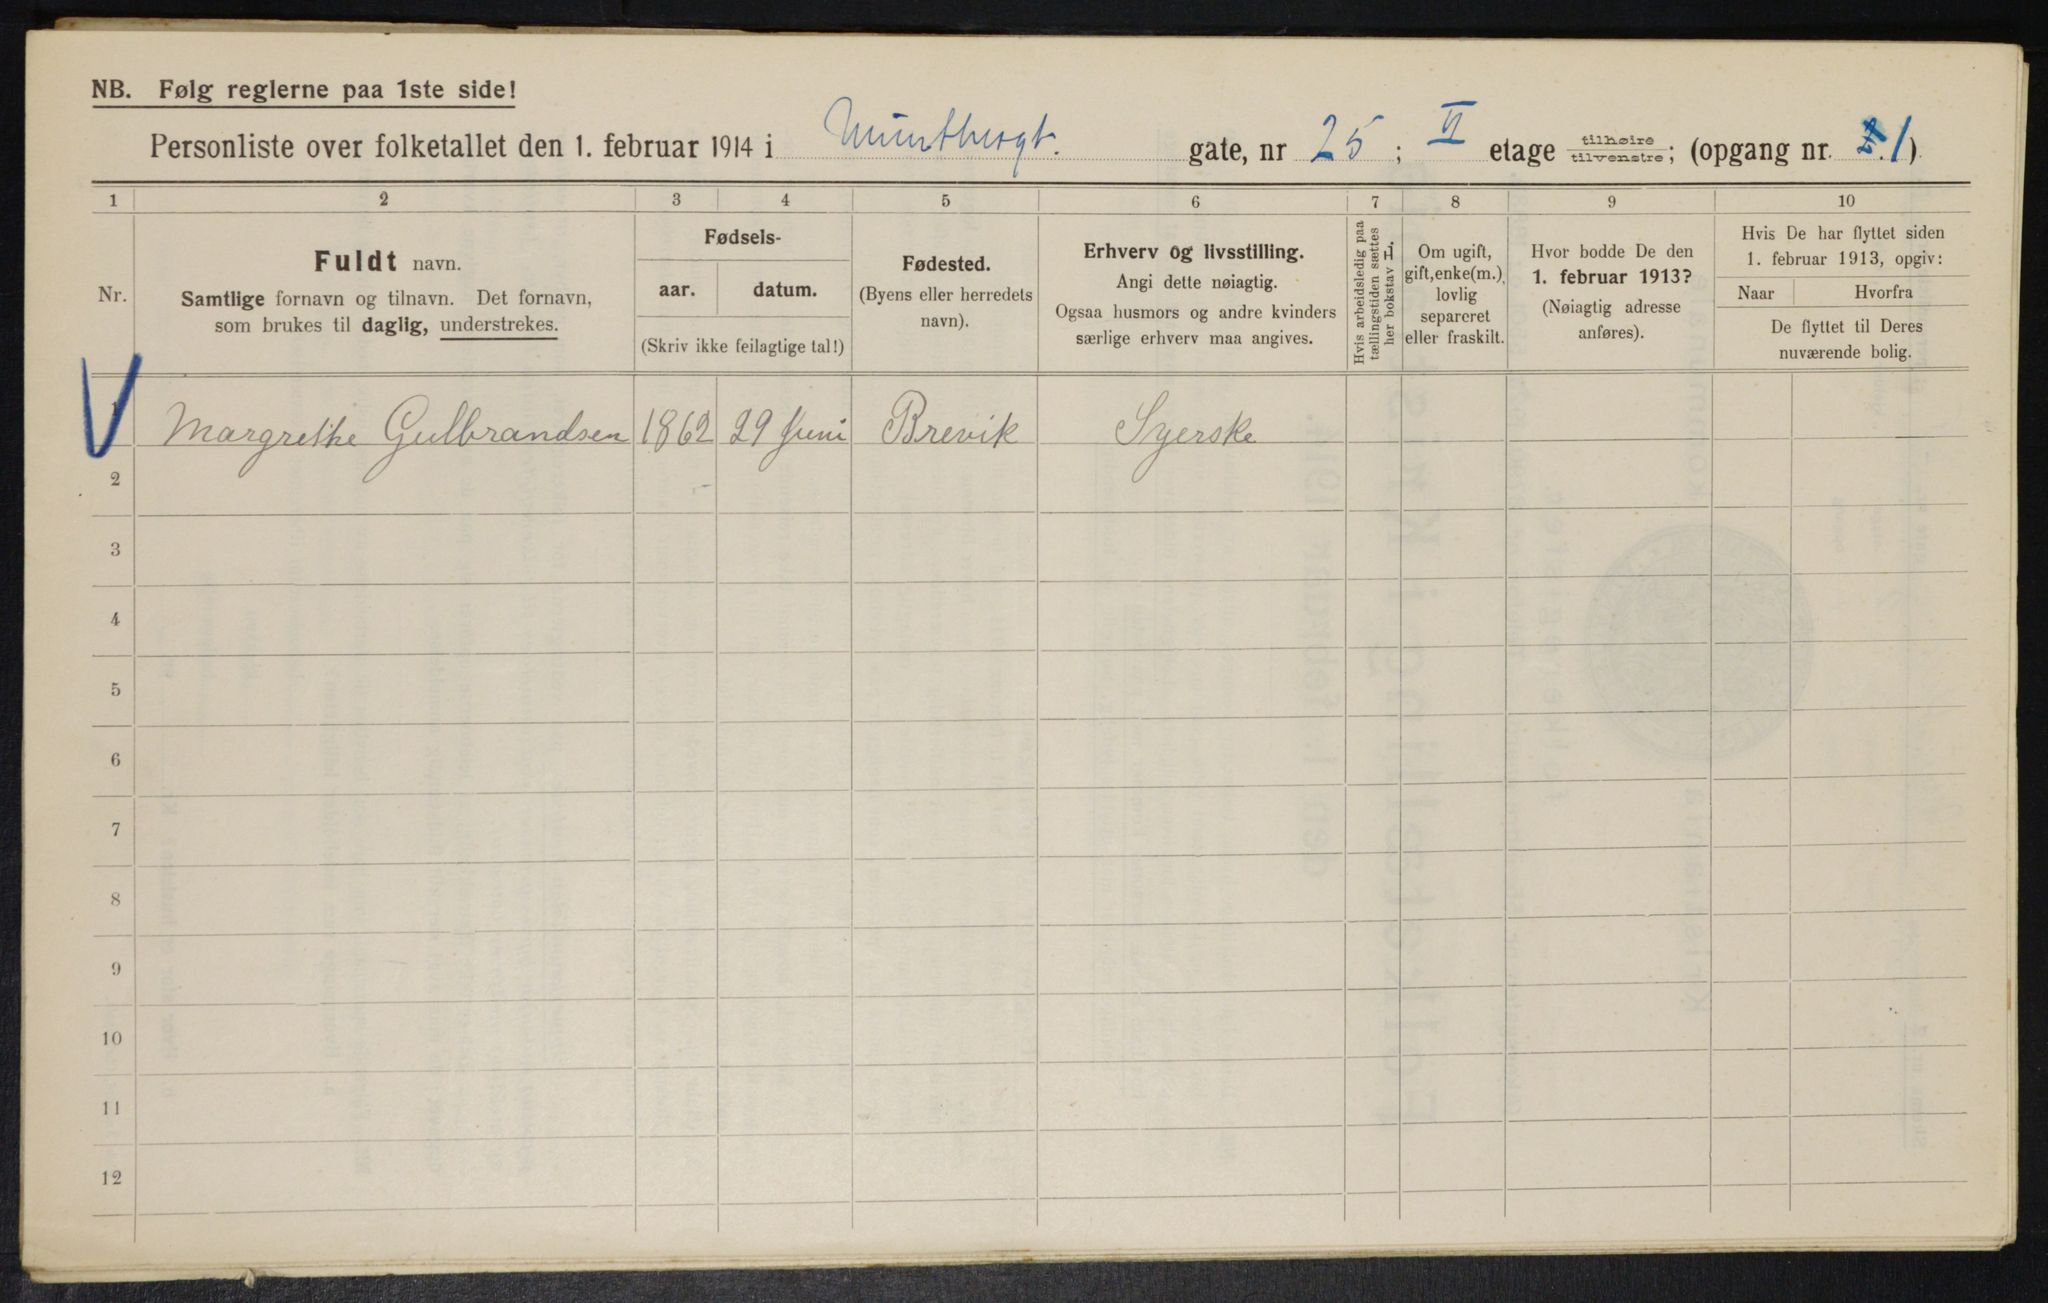 NB. Følg reglerne paa 1ste side!
Personliste over folketallet den 1. februar 1914 i Munthesgt. gate, nr 25; II etage tilhøire/tilvenstre; (opgang nr. 1)
1 2 3 4 5 6 7 8 9 10
Nr.
Fuldt navn.
Samtlige fornavn og tilnavn. Det fornavn,
som brukes til daglig, understrekes.
Fødsels-
aar. datum.
(Skriv ikke feilagtige tal!)
Fødested.
(Byens eller herredets
navn).
Erhverv og livsstilling.
Angi dette nøiagtig.
Ogsaa husmors og andre kvinders
særlige erhverv maa angives.
Hvis arbeidsledig paa
tællingstiden sættes
her bokstav L.
Om ugift,
gift, enke(m.),
lovlig
separeret
eller fraskilt.
Hvor bodde De den
1. februar 1913?
(Nøiagtig adresse
anføres).
Hvis De har flyttet siden
1. februar 1913, opgiv:
Naar Hvorfra
De flyttet til Deres
nuværende bolig.
1 Margrethe Gulbrandsen 1862 29 Juni Brevik Syerske
2
3
4
5
6
7
8
9
10
11
12